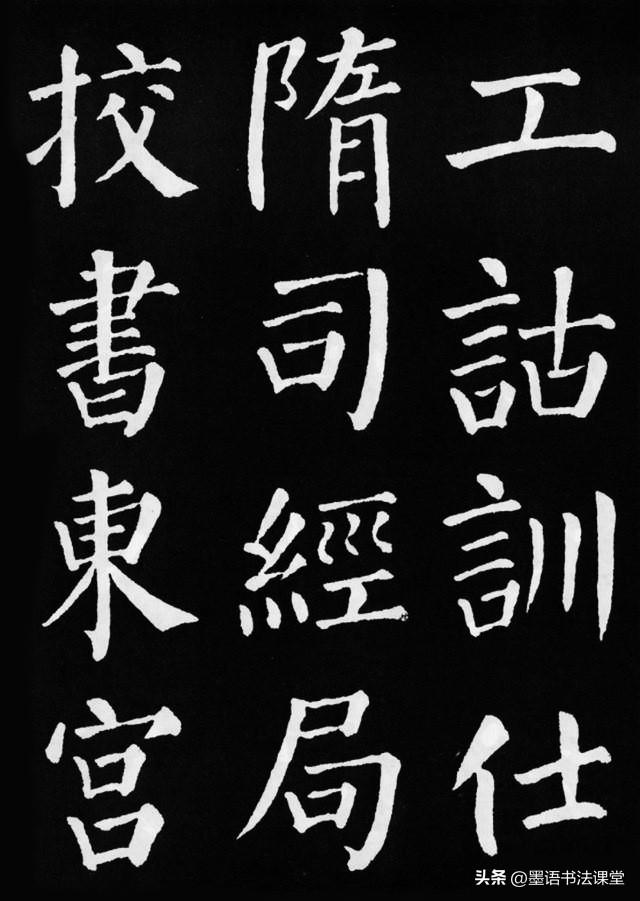 工詁訓仕
隋司經局
挍書東宮
头条 @墨语书法课堂